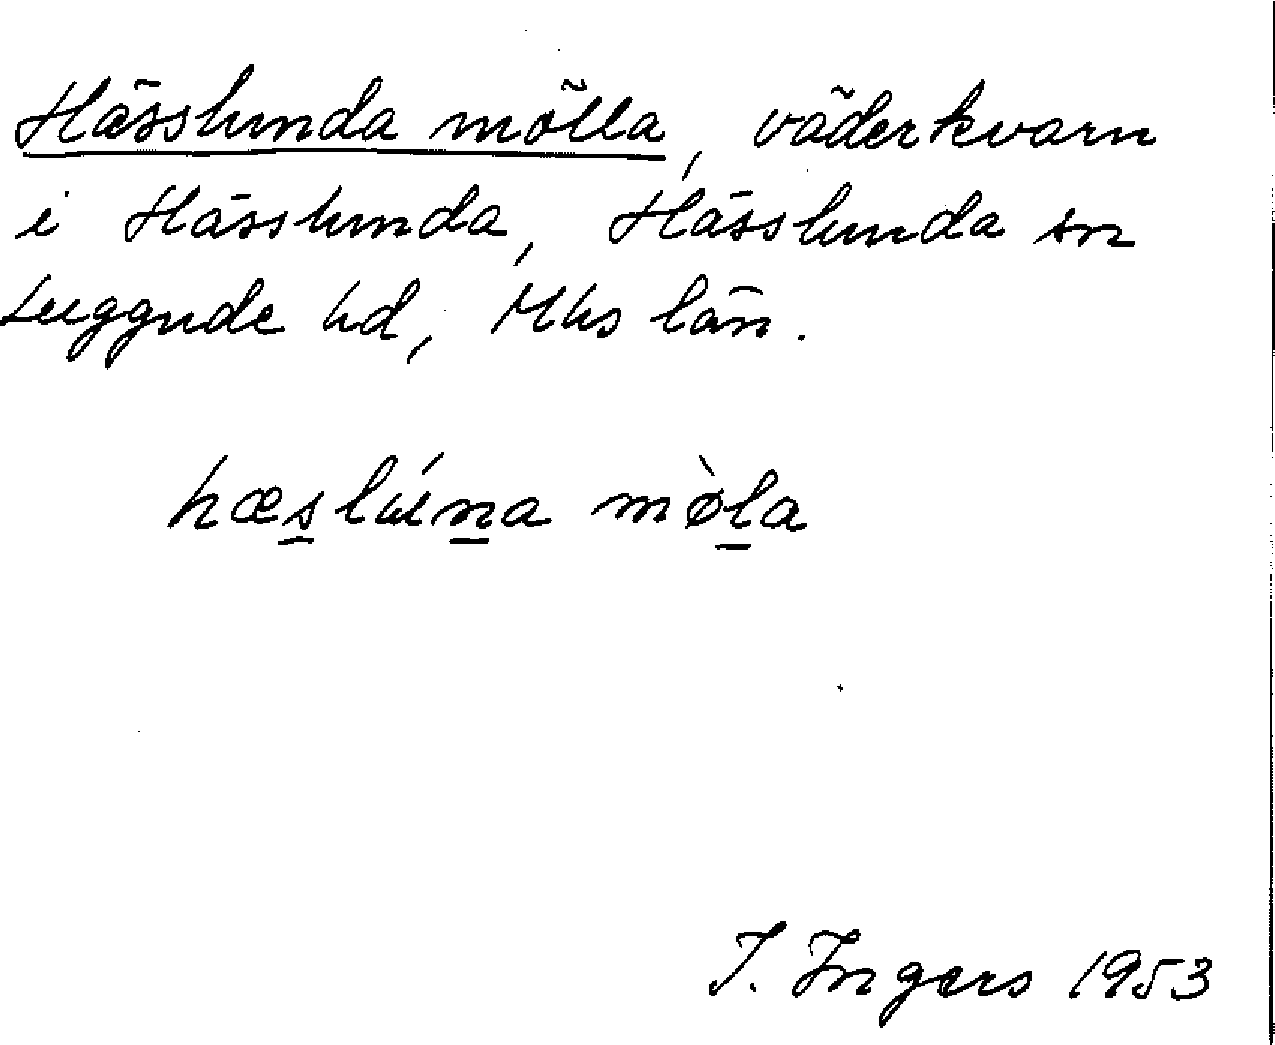 Hässlunda mölla, väderkvarn
i Hässlunda, Hässlunda sn
Luggude hd, Mhs län.
hæs̲lún̲a mø̀l̲a
I. Ingers 1953